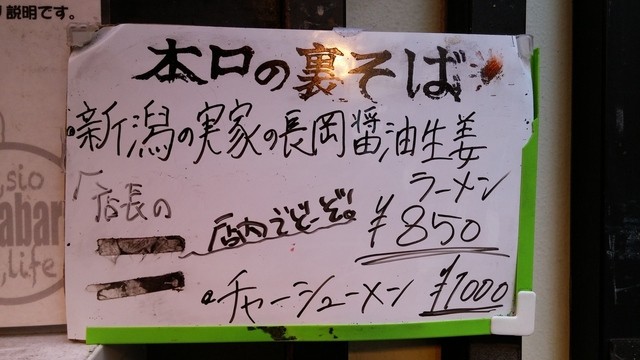 説明です。
本日の裏そば
新潟の実家の長岡醤油生姜
ラーメン
「店長の
店内でどーぞ!
¥850
チャーシューメン ¥1000
sio
abar
life